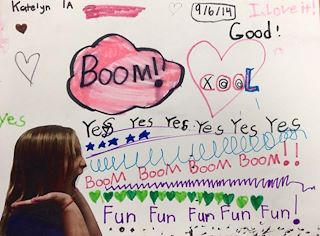 Katelyn 1A 9/6/14 I love it!
Good!
BOOM!
XOOL
Yes Yes Yes Yes Yes Yes
Yes
BOOM BOOM BOOM BOOM!!
Fun Fun Fun Fun Fun!